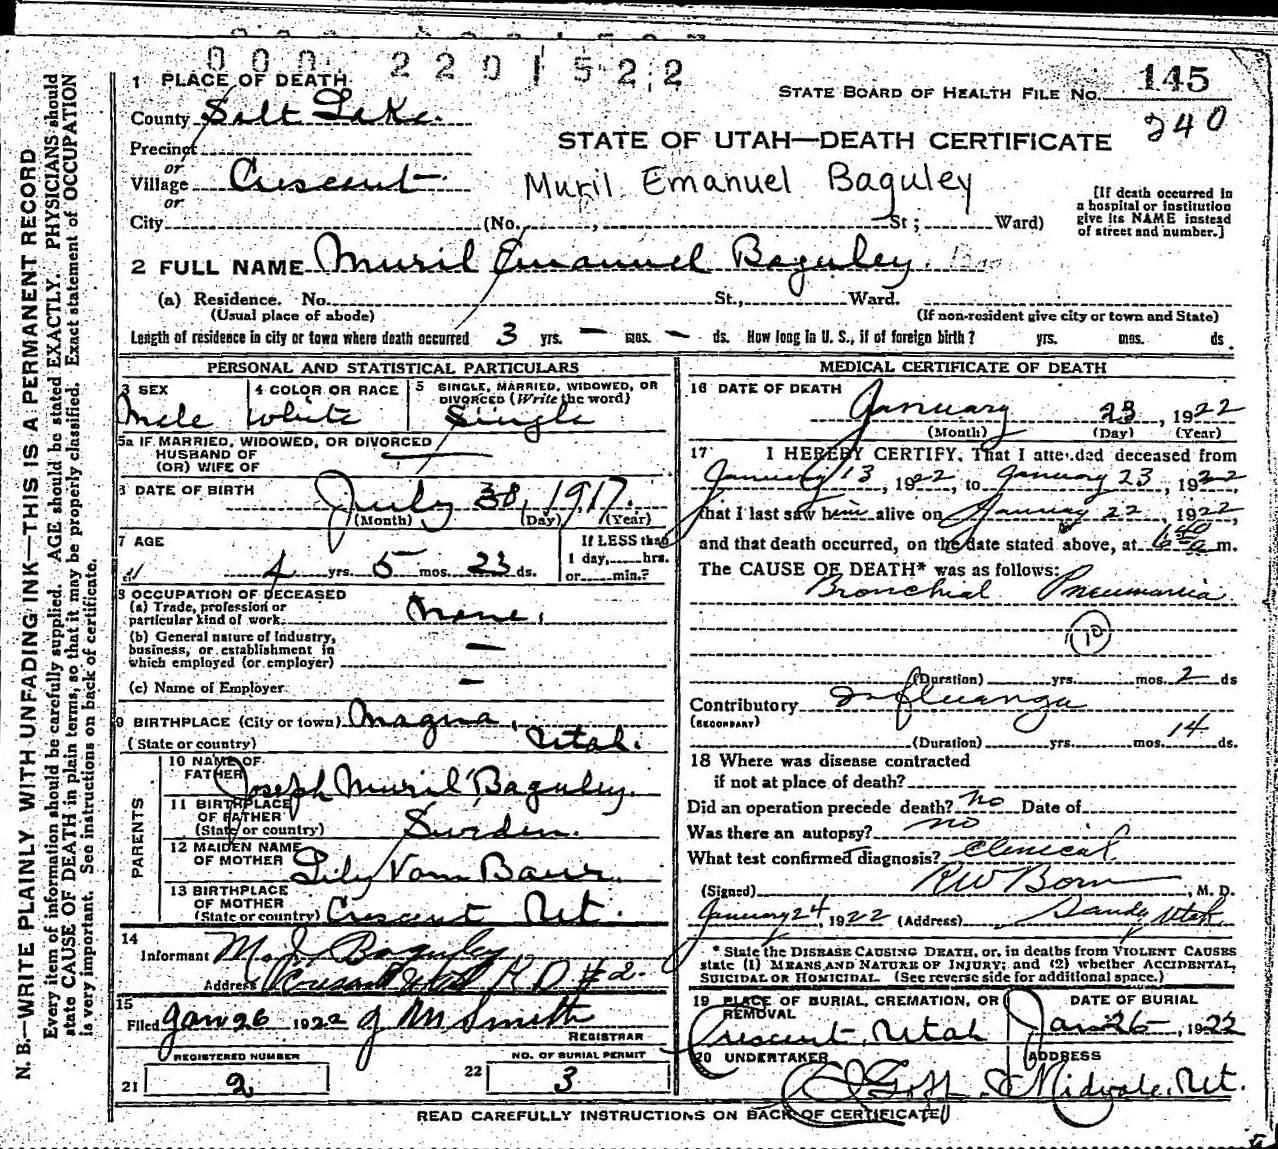 000 2201522
1 PLACE OF DEATH
STATE BOARD OF HEALTH FILE No. 145
240
County Salt Lake.
STATE OF UTAH—DEATH CERTIFICATE
Precinct
or
Village Crescent
or
Muril Emanuel Baguley
[If death occurred in
a hospital or institution
give its NAME instead
of street and number.]
City (No. , St ; Ward)
2 FULL NAME Muril Emanuel Baguley.
(a) Residence. No. St., Ward.
(Usual place of abode) (If non-resident give city or town and State)
Length of residence in city or town where death occurred 3 yrs. — mos. — ds. How long in U. S., if of foreign birth? yrs. mos. ds.
PERSONAL AND STATISTICAL PARTICULARS
3 SEX
Male
4 COLOR OR RACE
White
5 SINGLE, MARRIED, WIDOWED, OR
DIVORCED (Write the word)
Single
5a IF MARRIED, WIDOWED, OR DIVORCED
HUSBAND OF
(OR) WIFE OF
6 DATE OF BIRTH July 30, 1917.
(Month) (Day) (Year)
7 AGE
4 yrs. 5 mos. 23 ds.
If LESS than
1 day, hrs.
or min.?
8 OCCUPATION OF DECEASED
(a) Trade, profession or
particular kind of work None.
(b) General nature of Industry,
business, or establishment in
which employed (or employer) —
(c) Name of Employer —
9 BIRTHPLACE (City or town) Magna,
(State or country) Utah.
PARENTS
10 NAME OF
FATHER Joseph Muril Baguley.
11 BIRTHPLACE
OF FATHER
(State or country) Sweden.
12 MAIDEN NAME
OF MOTHER Lily Van
13 BIRTHPLACE
OF MOTHER
(State or country) Crescent Ut.
14
Informant M. J. Baguley
Address Crescent Utah R D #2.
15
Filed Jan 26 1922 J M Smith
REGISTRAR
REGISTERED NUMBER
21 2
NO. OF BURIAL PERMIT
22 3
MEDICAL CERTIFICATE OF DEATH
16 DATE OF DEATH
January 23, 1922
(Month) (Day) (Year)
17 I HEREBY CERTIFY, That I attended deceased from
January 13, 1922, to January 23, 1922,
that I last saw him alive on January 22, 1922,
and that death occurred, on the date stated above, at 6 40 a m.
The CAUSE OF DEATH* was as follows:
Bronchial Pneumonia
10
(Duration) yrs. mos. 2 ds
Contributory Influenza
(SECONDARY)
(Duration) yrs. mos. 14 ds.
18 Where was disease contracted
if not at place of death?
Did an operation precede death? no Date of
Was there an autopsy? no
What test confirmed diagnosis? Clinical
(Signed) R W Born, M. D.
January 24, 1922 (Address) Sandy Utah
* State the DISEASE CAUSING DEATH, or, in deaths from VIOLENT CAUSES
state (1) MEANS AND NATURE OF INJURY; and (2) whether ACCIDENTAL,
SUICIDAL OR HOMICIDAL. (See reverse side for additional space.)
19 PLACE OF BURIAL, CREMATION, OR
REMOVAL
Crescent, Utah
DATE OF BURIAL
Jan 26, 1922
20 UNDERTAKER
Goff
ADDRESS
Midvale, Ut.
READ CAREFULLY INSTRUCTIONS ON BACK OF CERTIFICATE
N. B.—WRITE PLAINLY WITH UNFADING INK—THIS IS A PERMANENT RECORD
Every item of information should be carefully supplied. AGE should be stated EXACTLY. PHYSICIANS should
state CAUSE OF DEATH in plain terms, so that it may be properly classified. Exact statement of OCCUPATION
is very important. See instructions on back of certificate.